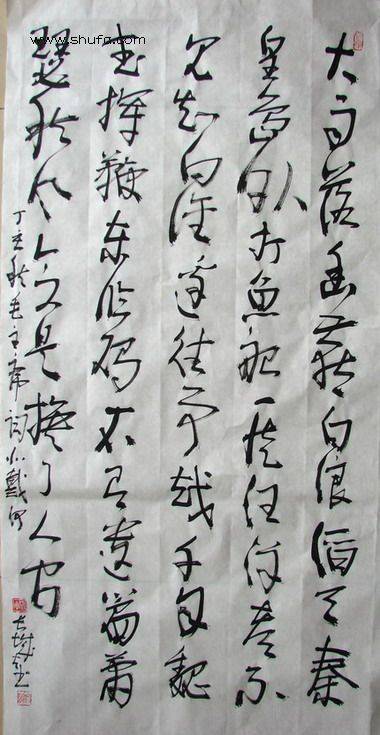 www.shufa.com
大雨落幽燕白浪滔天秦
皇岛外打魚船一片汪洋都不
见知向谁边往事越千年魏
武挥鞭东临碣石有遗篇萧
瑟秋风今又是换了人间
丁亥秋毛主席词北戴河